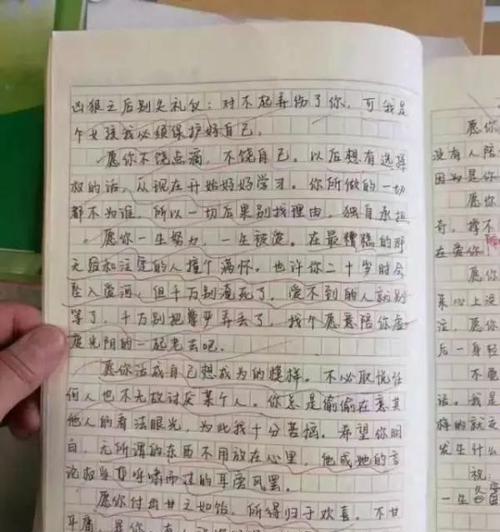 凶狠之后别忘礼仪：对不起弄伤了你，可我是
个女孩我必须保护好自己。
愿你不饶点滴，不饶自己。以后想有选择
权的话，从现在开始好好学习。你所做的一切
都不为谁，所以一切后果别找理由，独自承担
愿你一生努力，一生被爱。在最糟糕的那
天后和注定的人撞个满怀。也许你二十岁时会
坠入爱河，但千万别淹死了，爱不到的人就别
等了，千万别把尊严弄丢了，找个愿意陪你虚
度光阴的一起老去吧。
愿你活成自己想成为的模样。不必取悦任
何人也不无故讨厌某个人。你总是偷偷在意其
他人的看法眼光，为此我十分苦恼。希望你明
白，无所谓的东西不用放在心里，他或她的言
论权当是呼啸而过的耳旁风罢。
愿你付出甘之如饴，所得归于欢喜。不甘
愿你
没有人陪
因为是你
愿你
奇，撑不
在爱你
愿
来心上
注，愿你
后一身轻
不
话。我是
样的就
发生什么
祝，
一生